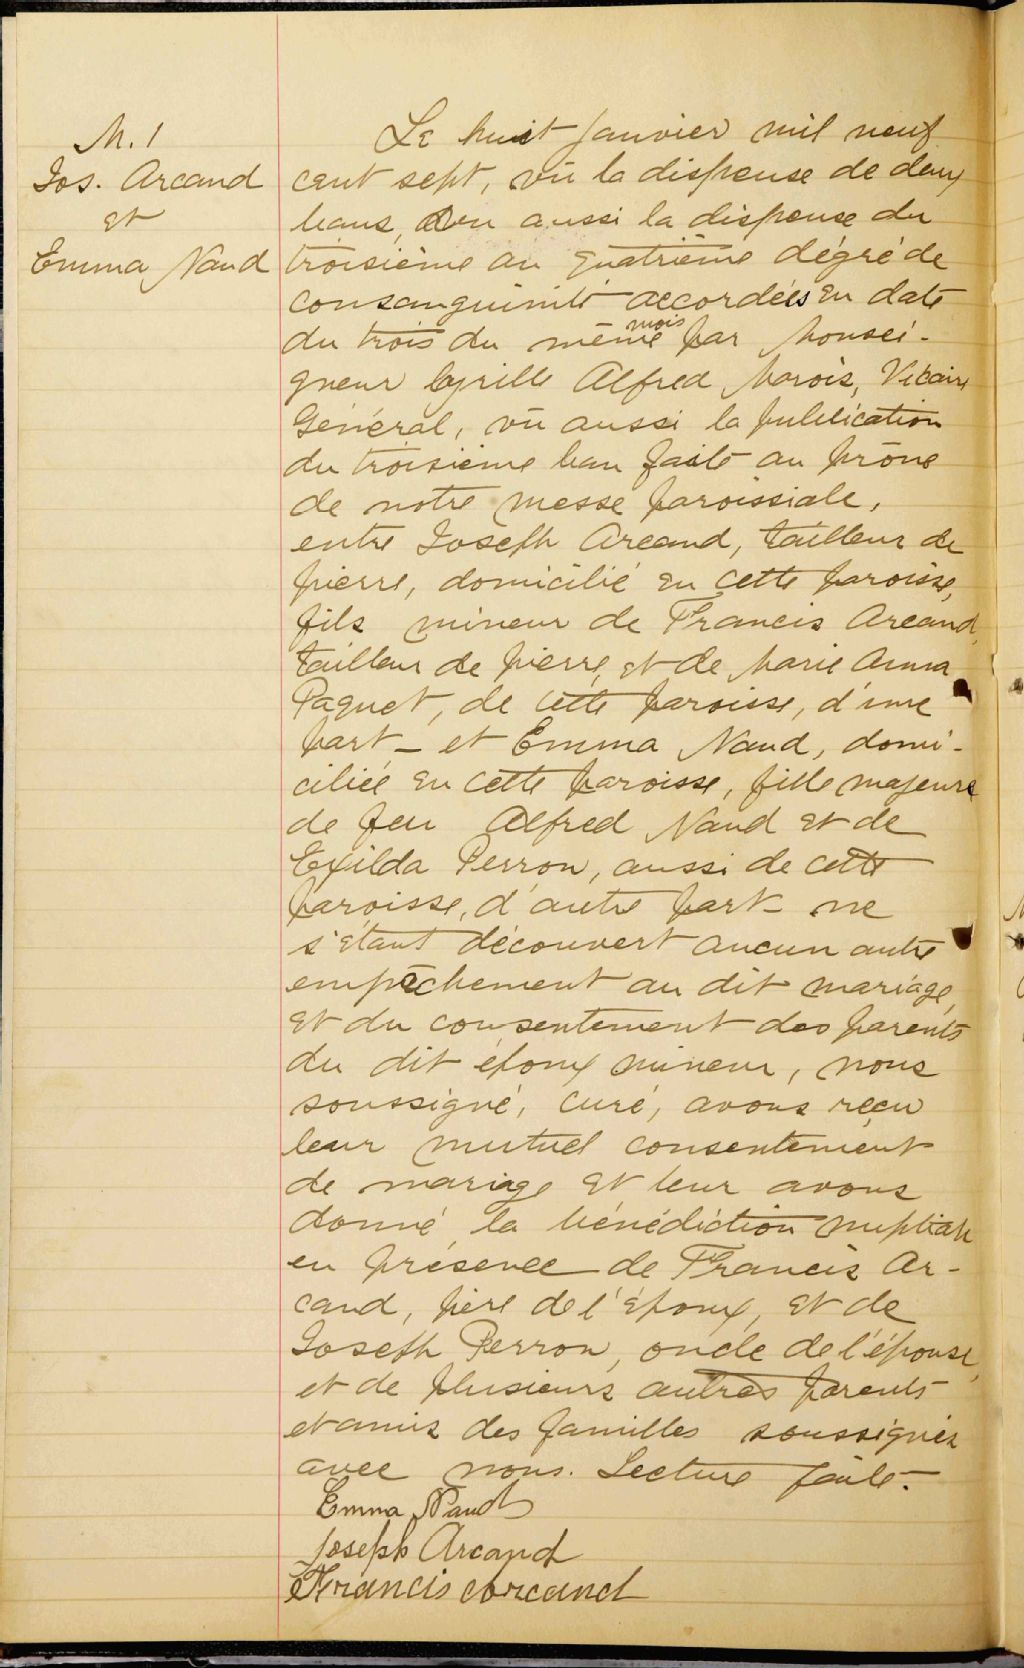 M. 1
Jos. Arcand
et
Emma Naud
Le huit janvier mil neuf
cent sept, vû la dispense de deux
bans, vu aussi la dispense du
troisième au quatrième dégré de
consanguinité accordées en date
du trois du même mois par Monsei-
gneur Cyrille Alfred Marois, Vicaire
Général, vû aussi la publication
du troisième ban faite au prône
de notre messe paroissiale,
entre Joseph Arcand, tailleur de
pierre, domicilié en cette paroisse,
fils mineur de Francis Arcand,
tailleur de pierre, et de Marie Anna
Paquet, de cette paroisse, d'une
part - et Emma Naud, domi-
ciliée en cette paroisse, fille majeure
de feu Alfred Naud et de
Exilda Perron, aussi de cette
paroisse, d'autre part - ne
s'étant découvert aucun autre
empêchement au dit mariage,
et du consentement des parents
du dit époux mineur, nous
soussigné, curé, avons reçu
leur mutuel consentement
de mariage et leur avons
donné la bénédiction nuptiale
en présence de Francis Ar-
cand, père de l'époux, et de
Joseph Perron, oncle de l'épouse,
et de plusieurs autres parents
et amis des familles soussignés
avec nous. Lecture faite.
Emma Naud
Joseph Arcand
Francis Arcand